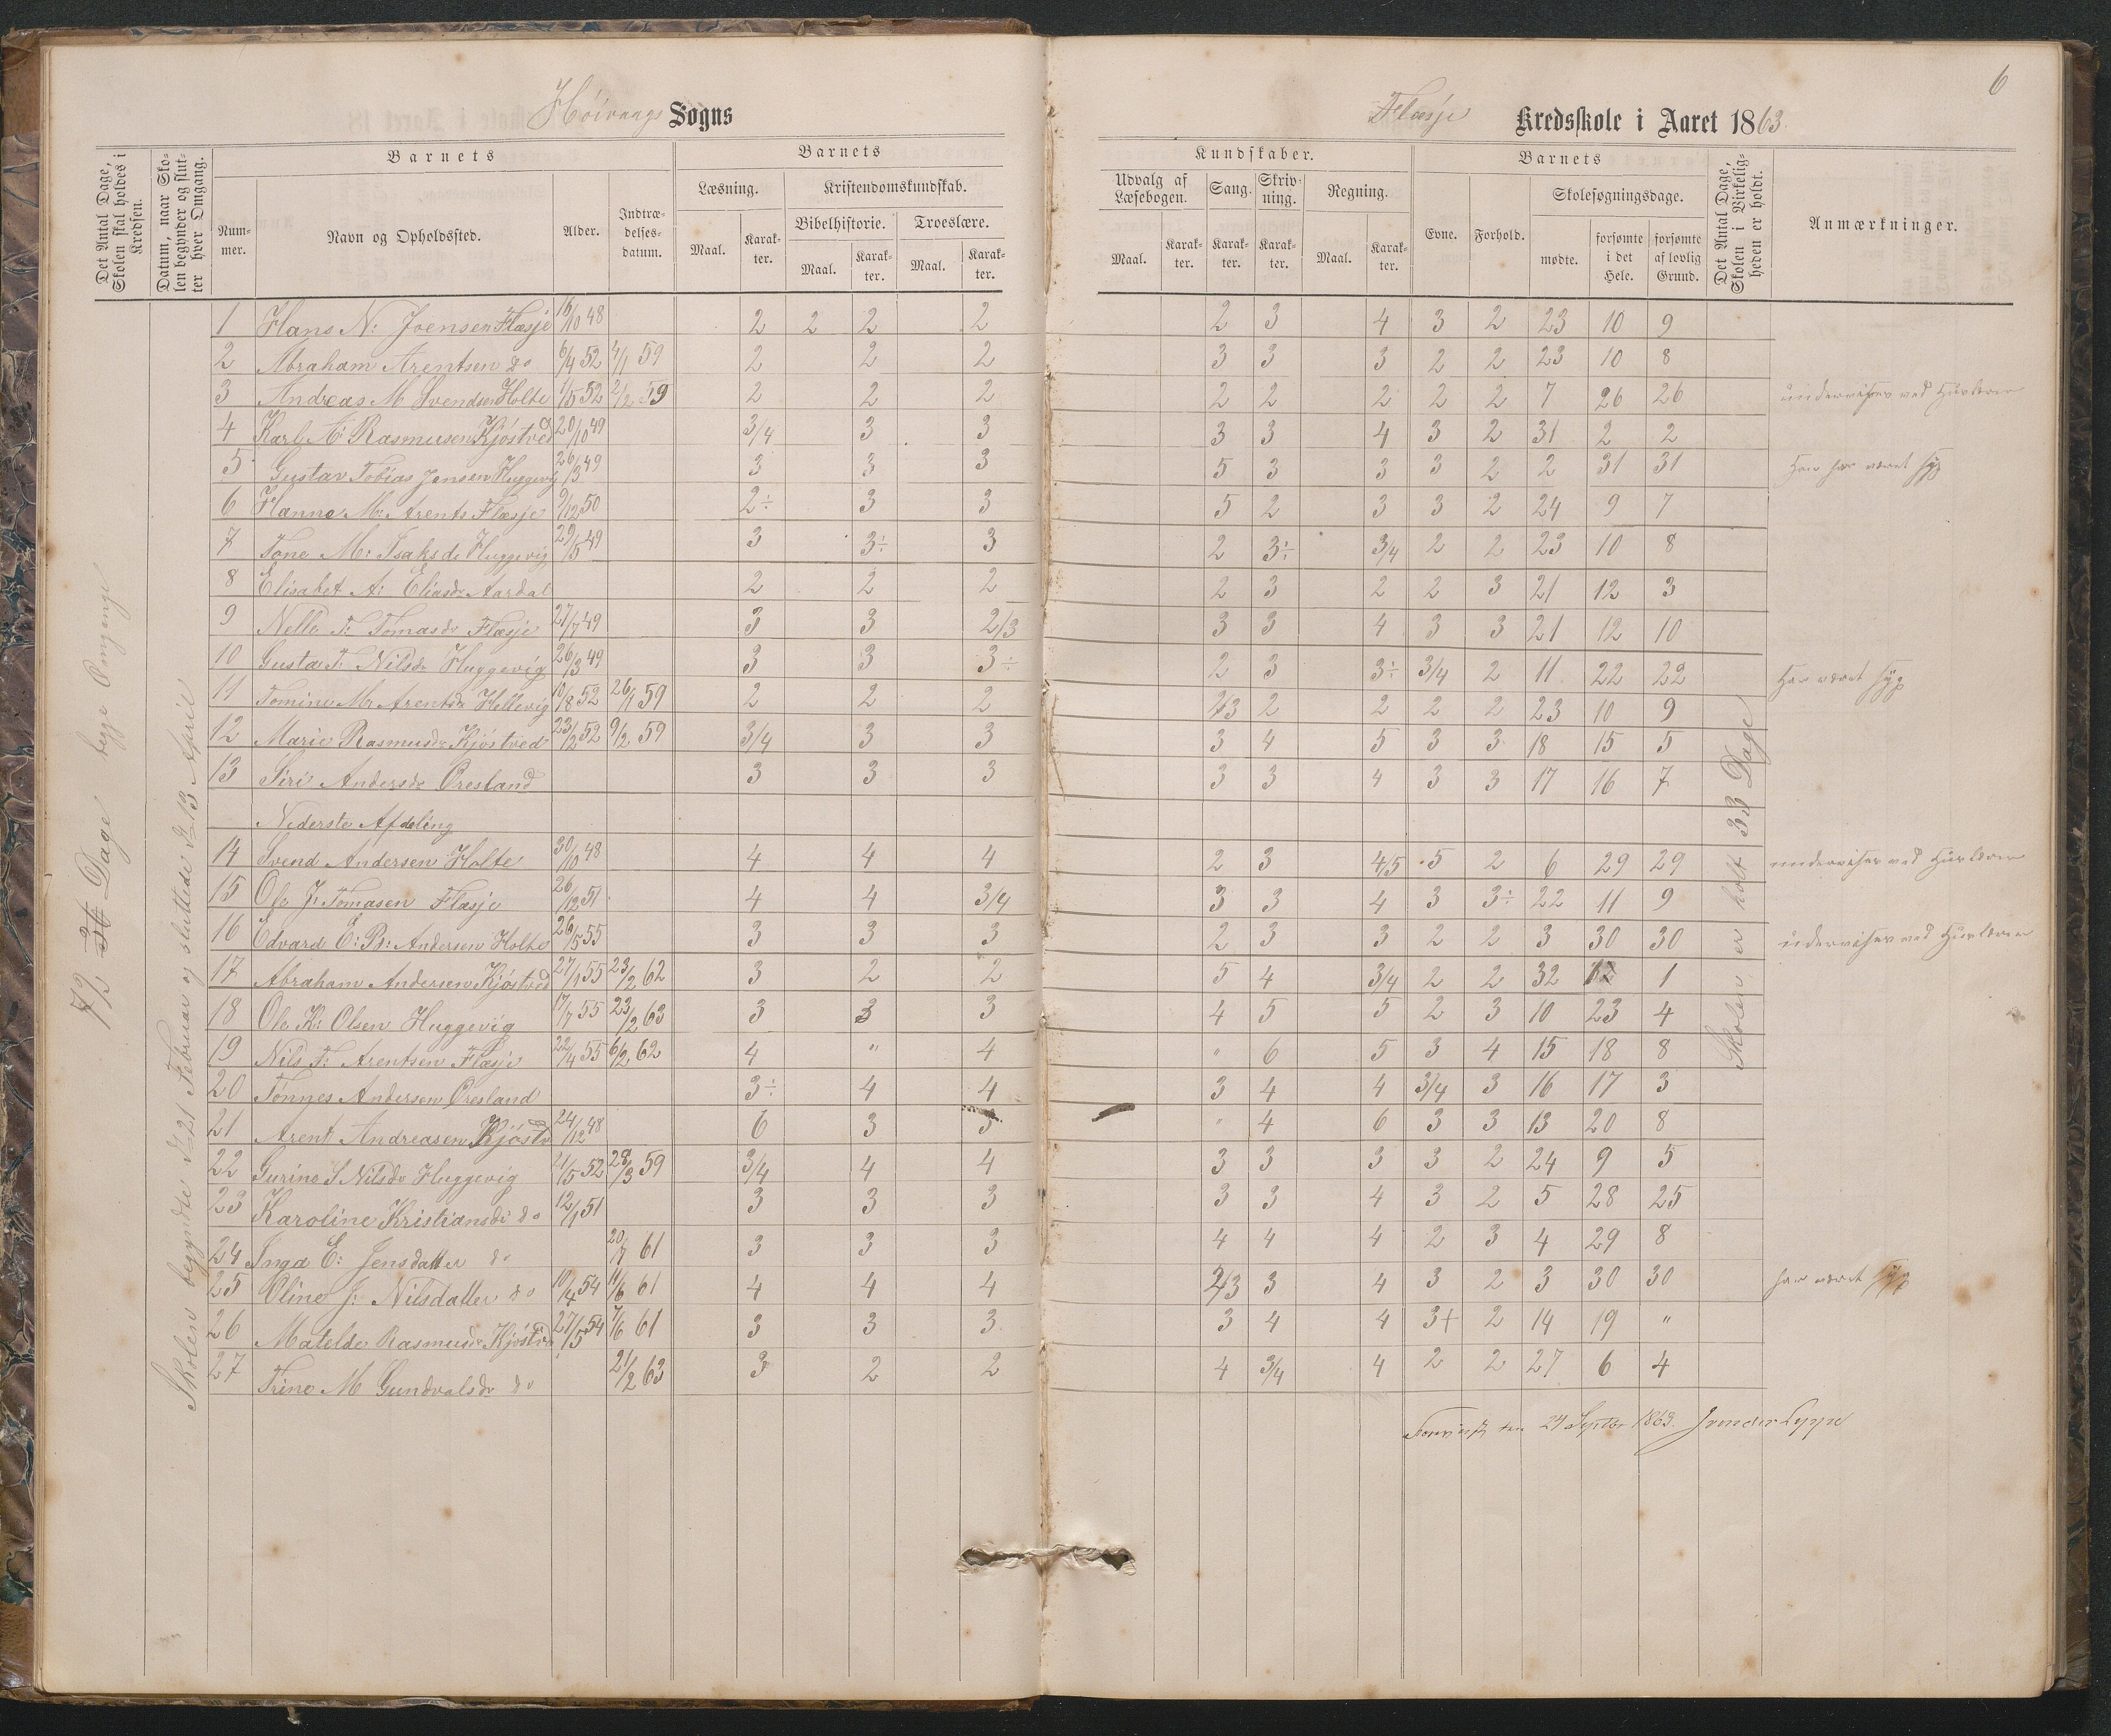 6
Høivaags Sogns
Flasje Kredsskole i Aaret 1863.
Det Antal Dage, Skolen skal holdes i Kredsen.
Datum, naar Skolen begynder og slutter hver Omgang.
Barnets
Nummer.
Navn og Opholdssted.
Alder.
Indtrædelsesdatum.
Barnets
Læsning.
Maal. Karakter.
Kristendomskundskab.
Bibelhistorie. Troeslære.
Maal. Karakter. Maal. Karakter.
Kundskaber.
Udvalg af Læsebogen. Sang. Skrivning. Regning.
Maal. Karakter. Karakter. Karakter. Maal. Karakter.
Barnets
Evne. Forhold.
Skolesøgningsdage.
mødte. forsømte i det Hele. forsømte af lovlig Grund.
Det Antal Dage, Skolen i Virkeligheden er holdt.
Anmærkninger.
72 Dage begge Omgange
Skolen begyndte d. 21 Februar og sluttede d. 13 April
Skolen er holt 33 Dage
1 Hans N: Joensen Flasje 16/10 48 2 2 2 2 2 3 4 3 2 23 10 9
2 Abraham Arentsen do 6/4 52 4/1 59 2 2 2 3 3 3 2 2 23 10 8
3 Andreas M Svendsen Holte 1/5 52 2/2 59 2 2 2 2 2 2 2 2 7 26 26 undervises ved Huuslærer
4 Karl A: Rasmusen Kjøstved 20/10 49 3/4 3 3 3 3 4 3 2 31 2 2
5 Gustav Tobias Jensen Huggevig 26/3 49 3 3 3 5 3 3 3 2 2 31 31 Han har været syg
6 Hanne M: Arents Flasje 9/12 50 2÷ 3 3 5 2 3 3 2 24 9 7
7 Tone M: Isaksdr Huggevig 29/5 49 3 3÷ 3 2 3÷ 3/4 2 2 23 10 8
8 Elisabet A: Eliasdr Aardal 2 2 2 2 3 2 2 3 21 12 3
9 Nelle T: Tomasdr Flasje 27/7 49 3 3 2/3 3 3 4 3 3 21 12 10
10 Gusta T: Nilsdr Huggevig 26/3 49 3 3 3÷ 2 3 3÷ 3/4 2 11 22 22 Har været syg
11 Tomine M: Arentsdr Hellevig 10/8 52 26/1 59 2 2 2 2/3 2 2 2 2 23 10 9
12 Marie Rasmusdr Kjøstved 23/2 52 9/2 59 3/4 3 3 3 4 5 3 3 18 15 5
13 Siri Andersdr Øresland 3 3 3 3 3 4 3 3 17 16 7
Nederste Afdeling
14 Svend Andersen Holte 30/10 48 4 4 4 2 3 4/5 5 2 6 29 29 undervises ved Huuslærer
15 Ole J: Tomasen Flasje 26/12 51 4 4 3/4 3 3 4 3 3÷ 22 11 9
16 Edvard E: B: Andersen Holte 26/5 55 3 3 3 2 3 3 2 2 3 30 30 undervises ved Huuslærer
17 Abraham Andersen Kjøstved 27/1 55 23/2 62 3 2 2 5 4 3/4 2 2 32 1 1
18 Ole K: Olsen Huggevig 17/7 55 23/2 63 3 3 3 4 5 5 2 3 10 23 4
19 Nils T: Arentsen Flasje 22/4 55 6/2 62 4 " 4 " 6 5 3 4 15 18 8
20 Tønnes Andersen Øresland 3÷ 4 4 3 4 4 3/4 3 16 17 3
21 Arent Andreasen Kjøstvd 24/12 48 6 3 3 " 4 6 3 3 13 20 8
22 Gurine S Nilsdr Huggevig 21/5 52 28/3 59 3/4 4 4 3 3 3 3 2 24 9 5
23 Karoline Kristiansdr do 12/1 51 3 3 3 3 3 4 3 2 5 28 25
24 Inga E: Jensdatter do 20/7 61 3 3 3 4 4 4 2 3 4 29 8
25 Oline J: Nilsdatter do 10/4 54 11/6 61 4 4 4 2/3 3 4 3 2 3 30 30 har været syg
26 Matelde Rasmusdr Kjøstvd 27/5 54 7/6 61 3 3 3 3 4 4 3+ 2 14 19 "
27 Trine M Gundvalsdr do 21/2 63 3 2 2 4 3/4 4 2 2 27 6 4
24 Septbr 1863.